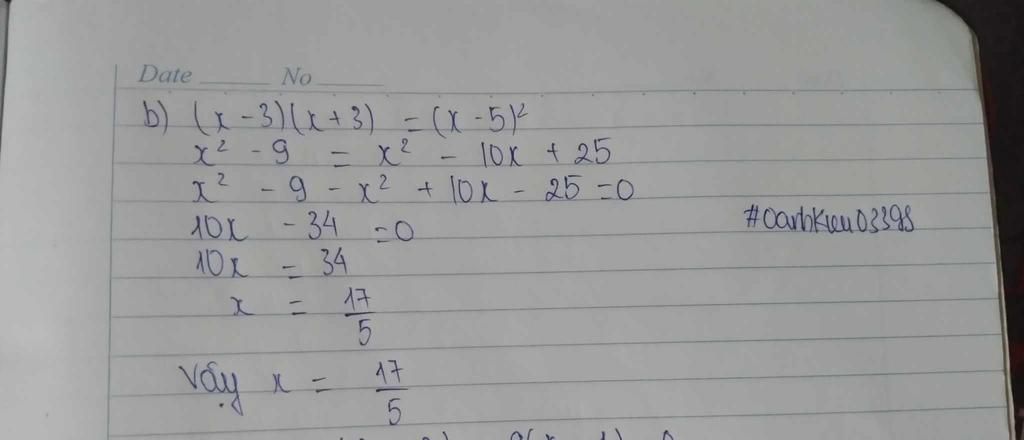 Date No
b) (x - 3)(x + 3) = (x - 5)²
x² - 9 = x² - 10x + 25
x² - 9 - x² + 10x - 25 = 0
10x - 34 = 0
#OanhKieu03398
10x = 34
x = 17/5
Vậy x = 17/5